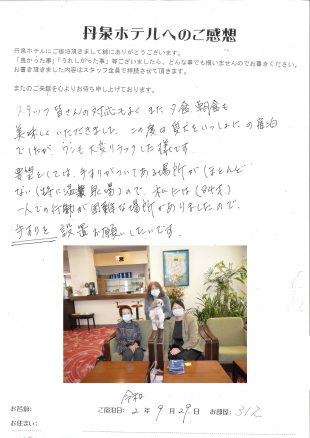 丹泉ホテルへのご感想
丹泉ホテルにご宿泊頂きまして誠にありがとうございます。
「良かった事」「うれしかった事」等ございましたら、どんな事でも構いませんのでお書きください。
お書き頂きました内容はスタッフ全員で拝読させて頂きます。
またのご来館を心よりお待ち申し上げております。
スタッフ皆さんの対応もよく また 夕食、朝食も
美味しくいただきました。この度は愛犬といっしょにの宿泊
でしたが ワンも大変リラックした様です。
要望としては、手すりがついてある場所が(ほとんど
ない(特に温泉場)ので、私には(84才)
一人での行動が困難な場所がありましたので、
手すりを 設置お願いしたいです。
令和
お名前: ご宿泊日: 2年 9月 29日 お部屋: 312
お住まい: